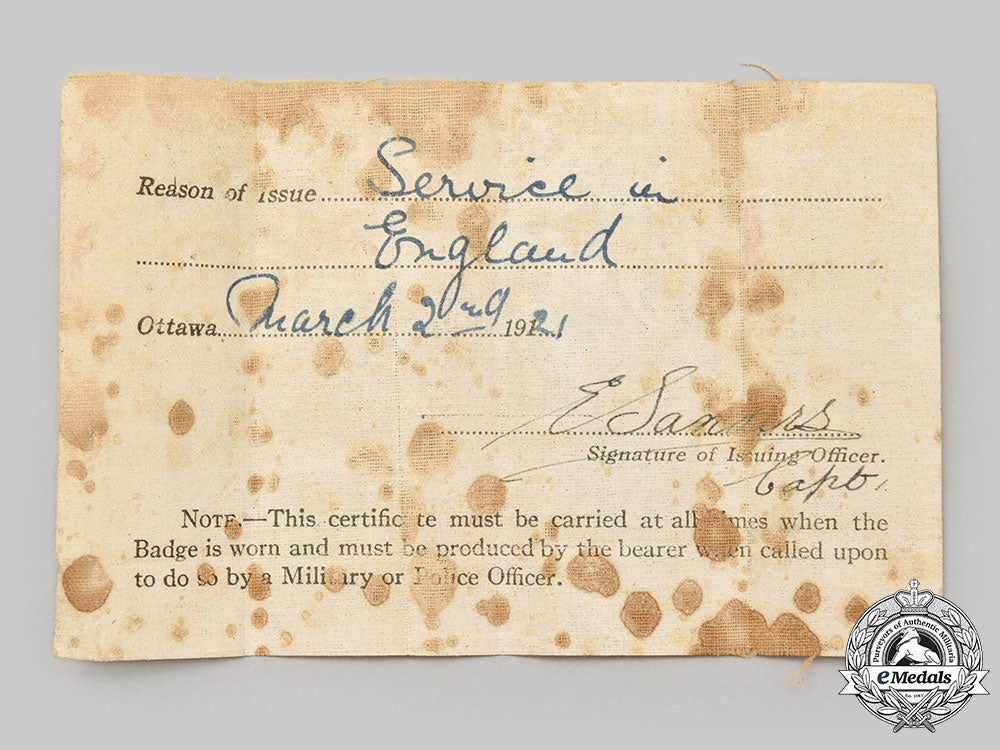 Reason of Issue Service in
England
Ottawa March 2nd 1921
E Sanders
Signature of Issuing Officer.
Capt.
NOTE.—This certificate must be carried at all times when the
Badge is worn and must be produced by the bearer when called upon
to do so by a Military or Police Officer.
Purveyors of Authentic Militaria
eMedals
Est. 1967